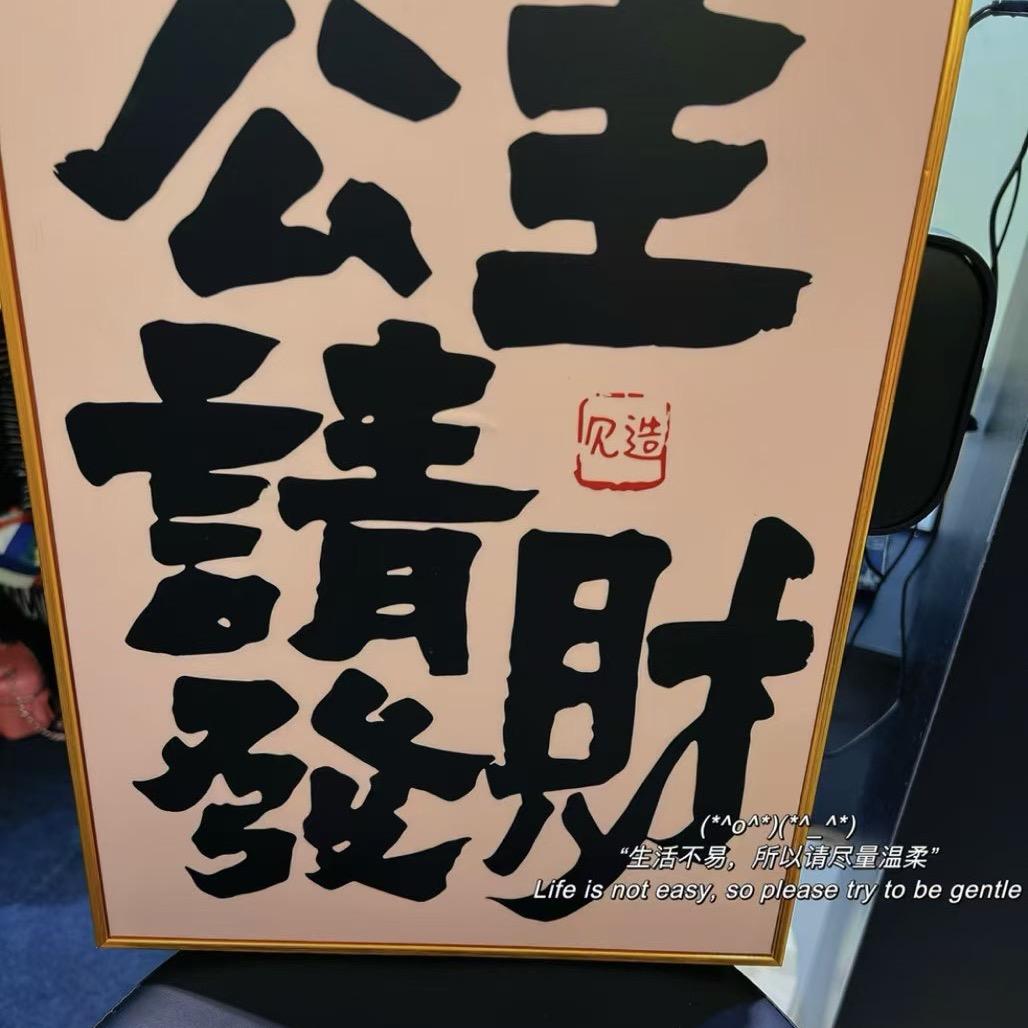 公主
請
發財
见造
(*^o^*)(*^_^*)
“生活不易，所以请尽量温柔”
Life is not easy, so please try to be gentle